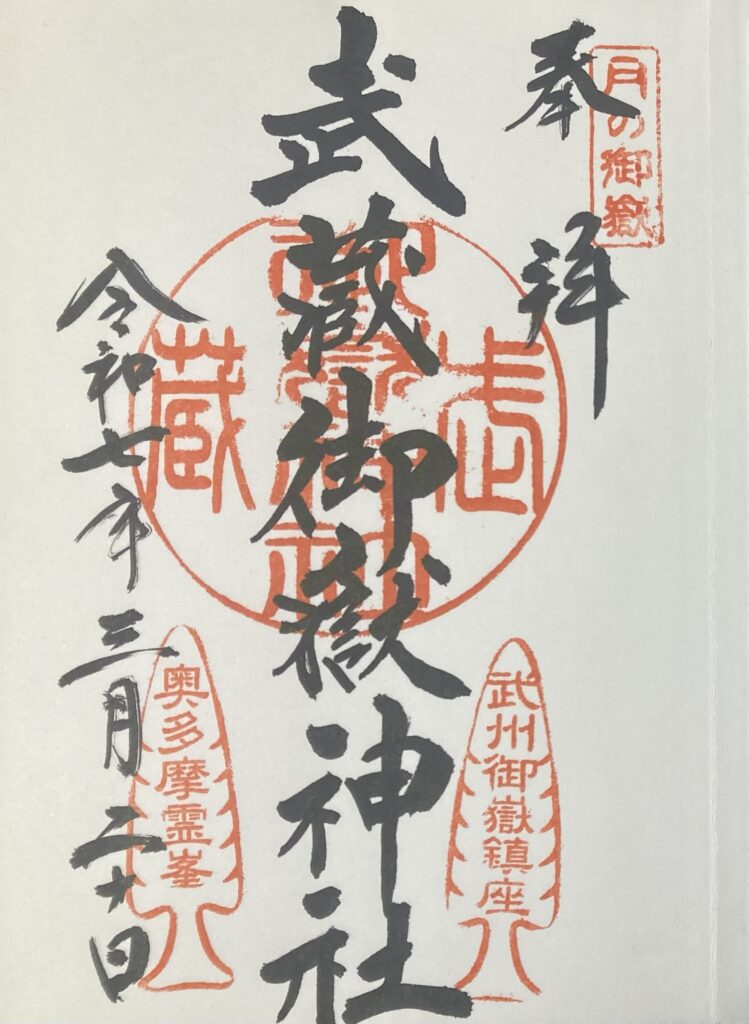 月の御嶽
奉拝
武州御嶽鎮座
武蔵御嶽神社
武蔵
奥多摩霊峯
令和七年三月二十日